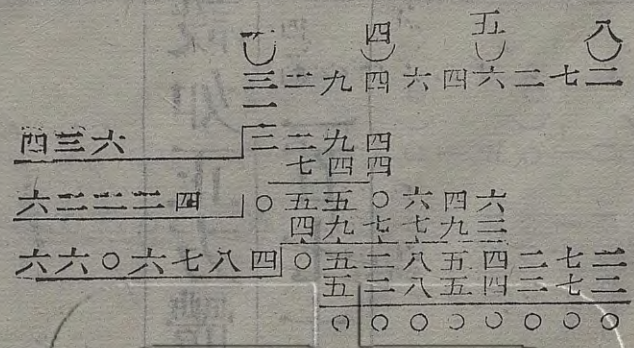 一 四 五 八
三二九四六四六二七二
一
四三六 二二九四
七四四
六二二二四 〇五五〇六四六
四九七七九二
六六〇六七八四 〇五二八五四二七二
五二八五四二七二
〇〇〇〇〇〇〇〇